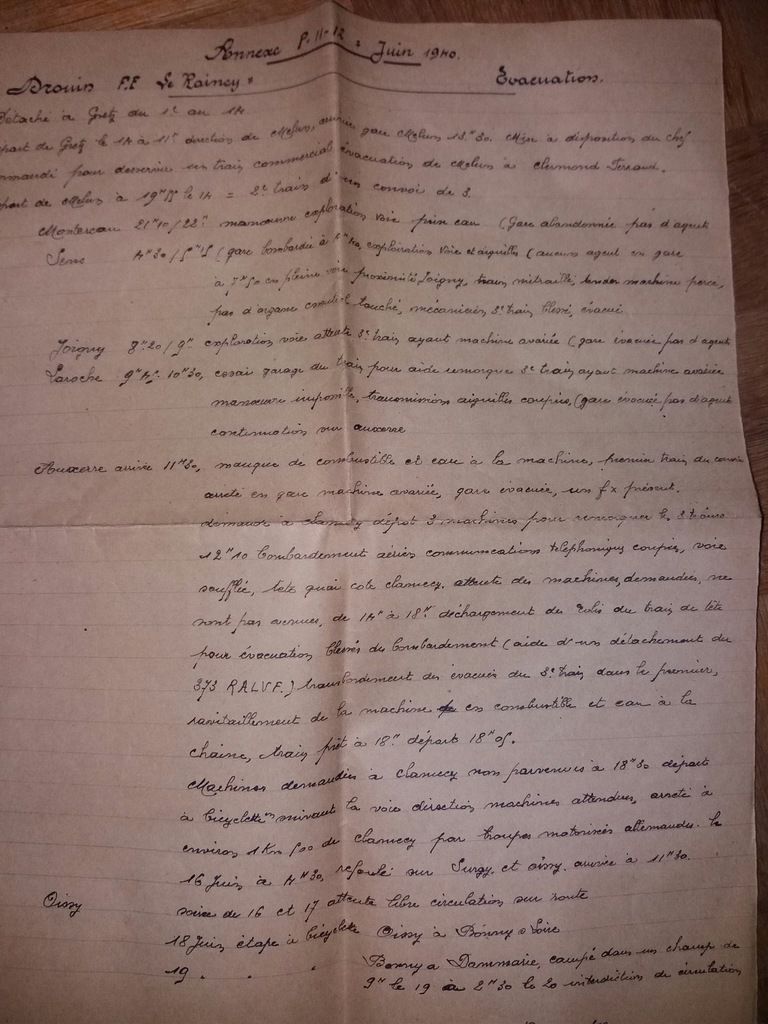 Annexe P. 11-12 = Juin 1940.
Drouin F.F Le Raincy = Evacuation.
Détaché à Gretz du 1er au 14
part de Gretz le 14 à 11h direction de Melun, gare Melun 13h30. Mise à disposition du chef
pour desservir un train commercial évacuation de Melun à Clermond Ferrand.
part de Melun à 19h le 14 = 2e train d'un convoi de 3.
Montereau 21h10/22h manœuvre exploration voie prise eau (gare abandonnée pas d'agent
Sens 4h30/5h (gare bombardée à exploration voie et aiguilles (aucun agent en gare
à 7h50 en pleine voie proximité Joigny, train mitraillé, tender machine percé,
pas d'organe essentiel touché, mécanicien 3e train blessé, évacué
Joigny 8h20/9h exploration voie attente 3e train ayant machine avariée (gare évacuée pas d'agent
Laroche 10h30, essai garage du train pour aide remorque 3e train ayant machine avariée
manœuvre impossible, transmissions aiguilles coupées, (gare évacuée pas d'agent
continuation sur auxerre
Auxerre arrivée 11h30, manque de combustible et eau à la machine, premier train du convoi
arrêté en gare machine avariée, gare évacuée, un fx présent.
demande à clamecy dépôt 3 machines pour remorquer les 3 trains
12h10 bombardement aérien communications téléphoniques coupées, voie
soufflée, tête quai coté clamecy. attente des machines demandées, ne
sont pas venues, de 14h à 18h déchargement des colis du train de tête
pour évacuation blessés du bombardement (aide d'un détachement du
373 R.A.L.V.F.) transbordement des évacués du 3e train dans le premier,
ravitaillement de la machine en combustible et eau à la
chaine, train prêt à 18h départ 18h05.
Machines demandées à clamecy non parvenues à 18h30 départ
à bicyclette suivant la voie direction machines attendues, arreté à
environ 1Km 500 de clamecy par troupes motorisées allemandes. le
16 Juin à 4h30, refoulé sur Surgy et oisy. arrivée à 11h30.
Oisy soirée de 16 et 17 attente libre circulation sur route
18 Juin étape à bicyclette Oisy à Bonny s Loire
19 . . . Bonny à Dammarie, campé dans un champ de
9h le 19 à 2h30 le 20 interdiction de circulation